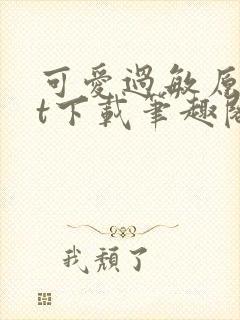 可愛過敏原
t下載筆趣閣
我頹了